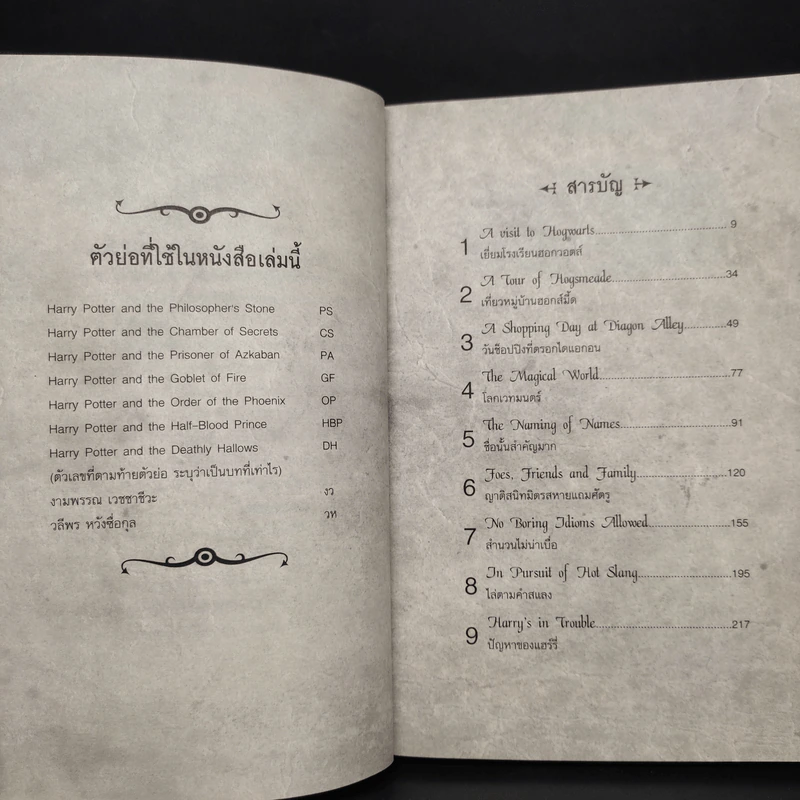 ตัวย่อที่ใช้ในหนังสือเล่มนี้
Harry Potter and the Philosopher's Stone PS
Harry Potter and the Chamber of Secrets CS
Harry Potter and the Prisoner of Azkaban PA
Harry Potter and the Goblet of Fire GF
Harry Potter and the Order of the Phoenix OP
Harry Potter and the Half-Blood Prince HBP
Harry Potter and the Deathly Hallows DH
(ตัวเลขที่ตามท้ายตัวย่อ ระบุว่าเป็นบทที่เท่าไร)
งามพรรณ เวชชาชีวะ งว
วลีพร หวังซื่อกุล วห
สารบัญ
1 A visit to Hogwarts 9
เยี่ยมโรงเรียนฮอกวอตส์
2 A Tour of Hogsmeade 34
เที่ยวหมู่บ้านฮอกส์มี้ด
3 A Shopping Day at Diagon Alley 49
วันช็อปปิงที่ตรอกไดแอกอน
4 The Magical World 77
โลกเวทมนตร์
5 The Naming of Names 91
ชื่อนั้นสำคัญมาก
6 Foes, Friends and Family 120
ญาติสนิทมิตรสหายแถมศัตรู
7 No Boring Idioms Allowed 155
สำนวนไม่น่าเบื่อ
8 In Pursuit of Hot Slang 195
ไล่ตามคำสแลง
9 Harry's in Trouble 217
ปัญหาของแฮร์รี่